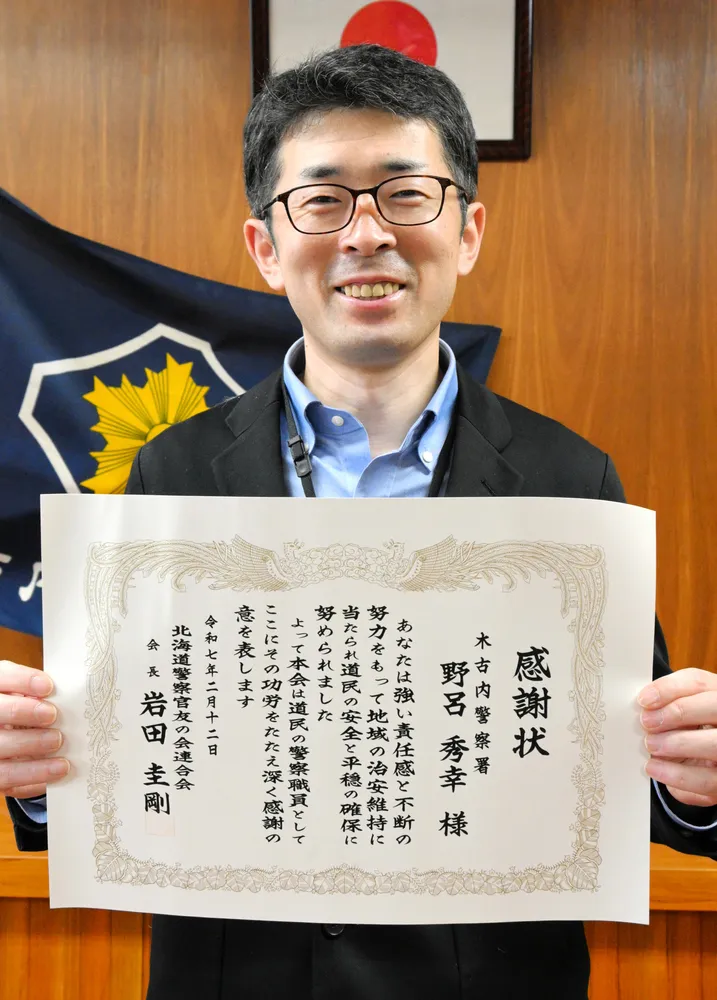 感謝状
木古内警察署
野呂 秀幸 様
あなたは強い責任感と不断の
努力をもって地域の治安維持に
当たられ道民の安全と平穏の確保に
努められました
よって本会は道民の警察職員として
ここにその功労をたたえ深く感謝の
意を表します
令和七年二月十二日
北海道警察官友の会連合会
会長 岩田 圭剛